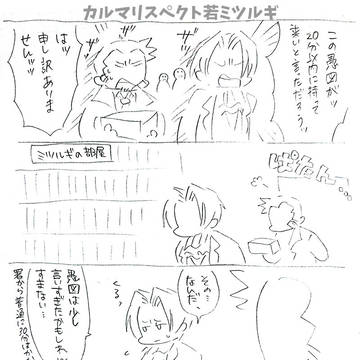 カルマリスペクト若ミツルギ
この愚図がッ
20分以内に持って
来いと言っただろうッ
はッ
申し訳ありま
せんッッ
ミツルギの部屋
ばたん…
その…
なんだ、
くるっ
愚図は少し
言いすぎたかもしれ
すぎない…